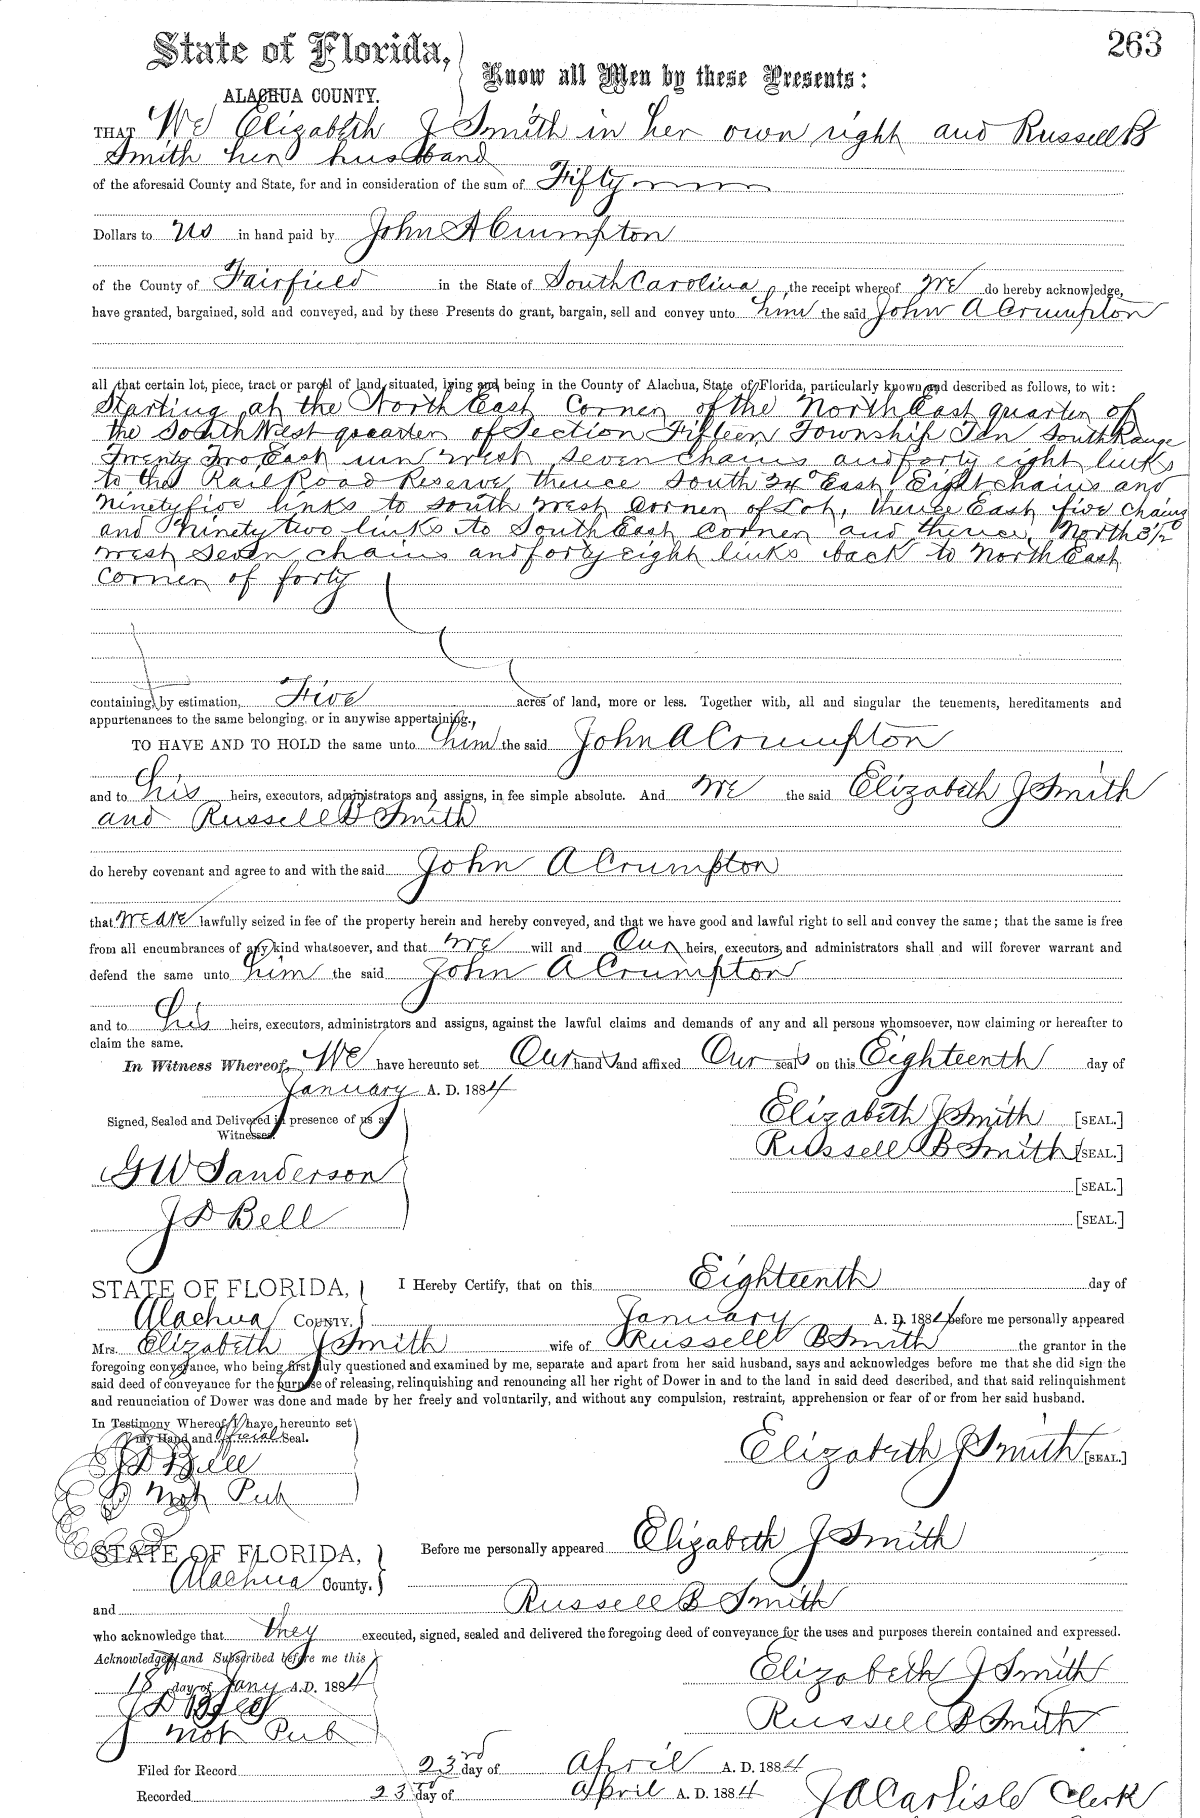 263
State of Florida,
Know all Men by these Presents:
ALACHUA COUNTY.
THAT We Elizabeth J Smith in her own right and Russell B
Smith her husband
of the aforesaid County and State, for and in consideration of the sum of Fifty
Dollars to us in hand paid by John A Crumpton
of the County of Fairfield in the State of South Carolina, the receipt whereof we do hereby acknowledge,
have granted, bargained, sold and conveyed, and by these Presents do grant, bargain, sell and convey unto him the said John A Crumpton
all that certain lot, piece, tract or parcel of land, situated, lying and being in the County of Alachua, State of Florida, particularly known and described as follows, to wit:
Starting at the North East Corner of the North East quarter of
the South West quarter of Section Fifteen Township Ten South Range
Twenty Two East run west seven chains and forty eight links
to the Rail Road Reserve thence South 24° East Eight chains and
ninety five links to south west Corner of Lot, thence East five chains
and ninety two links to South East Corner and thence North 3 1/2
west seven chains and forty eight links back to North East
Corner of forty
containing, by estimation, Five acres of land, more or less. Together with, all and singular the tenements, hereditaments and
appurtenances to the same belonging, or in anywise appertaining.
TO HAVE AND TO HOLD the same unto him the said John A Crumpton
and to his heirs, executors, administrators and assigns, in fee simple absolute. And we the said Elizabeth J Smith
and Russell B Smith
do hereby covenant and agree to and with the said John A Crumpton
that we are lawfully seized in fee of the property herein and hereby conveyed, and that we have good and lawful right to sell and convey the same; that the same is free
from all encumbrances of any kind whatsoever, and that we will and Our heirs, executors, and administrators shall and will forever warrant and
defend the same unto him the said John A Crumpton
and to his heirs, executors, administrators and assigns, against the lawful claims and demands of any and all persons whomsoever, now claiming or hereafter to
claim the same.
In Witness Whereof, We have hereunto set Our hands and affixed Our seals on this Eighteenth day of
January A. D. 1884
Signed, Sealed and Delivered in presence of us as
Witnesses.
Elizabeth J Smith [SEAL.]
Russell B Smith [SEAL.]
G W Sanderson
[SEAL.]
J D Bell
[SEAL.]
STATE OF FLORIDA,
I Hereby Certify, that on this Eighteenth day of
Alachua COUNTY.
January A. D. 1884 before me personally appeared
Mrs. Elizabeth J Smith wife of Russell B Smith the grantor in the
foregoing conveyance, who being first duly questioned and examined by me, separate and apart from her said husband, says and acknowledges before me that she did sign the
said deed of conveyance for the purpose of releasing, relinquishing and renouncing all her right of Dower in and to the land in said deed described, and that said relinquishment
and renunciation of Dower was done and made by her freely and voluntarily, and without any compulsion, restraint, apprehension or fear of or from her said husband.
In Testimony Whereof, I have hereunto set
my Hand and official Seal.
Elizabeth J Smith [SEAL.]
J D Bell
Not Pub
STATE OF FLORIDA,
Before me personally appeared Elizabeth J Smith
Alachua County.
and Russell B Smith
who acknowledge that they executed, signed, sealed and delivered the foregoing deed of conveyance for the uses and purposes therein contained and expressed.
Acknowledged and Subscribed before me this
18th day of Jany A.D. 1884
Elizabeth J Smith
J D Bell
Russell B Smith
Not Pub
Filed for Record 23rd day of April A. D. 1884
Recorded 23rd day of April A. D. 1884
J A Carlisle Clerk